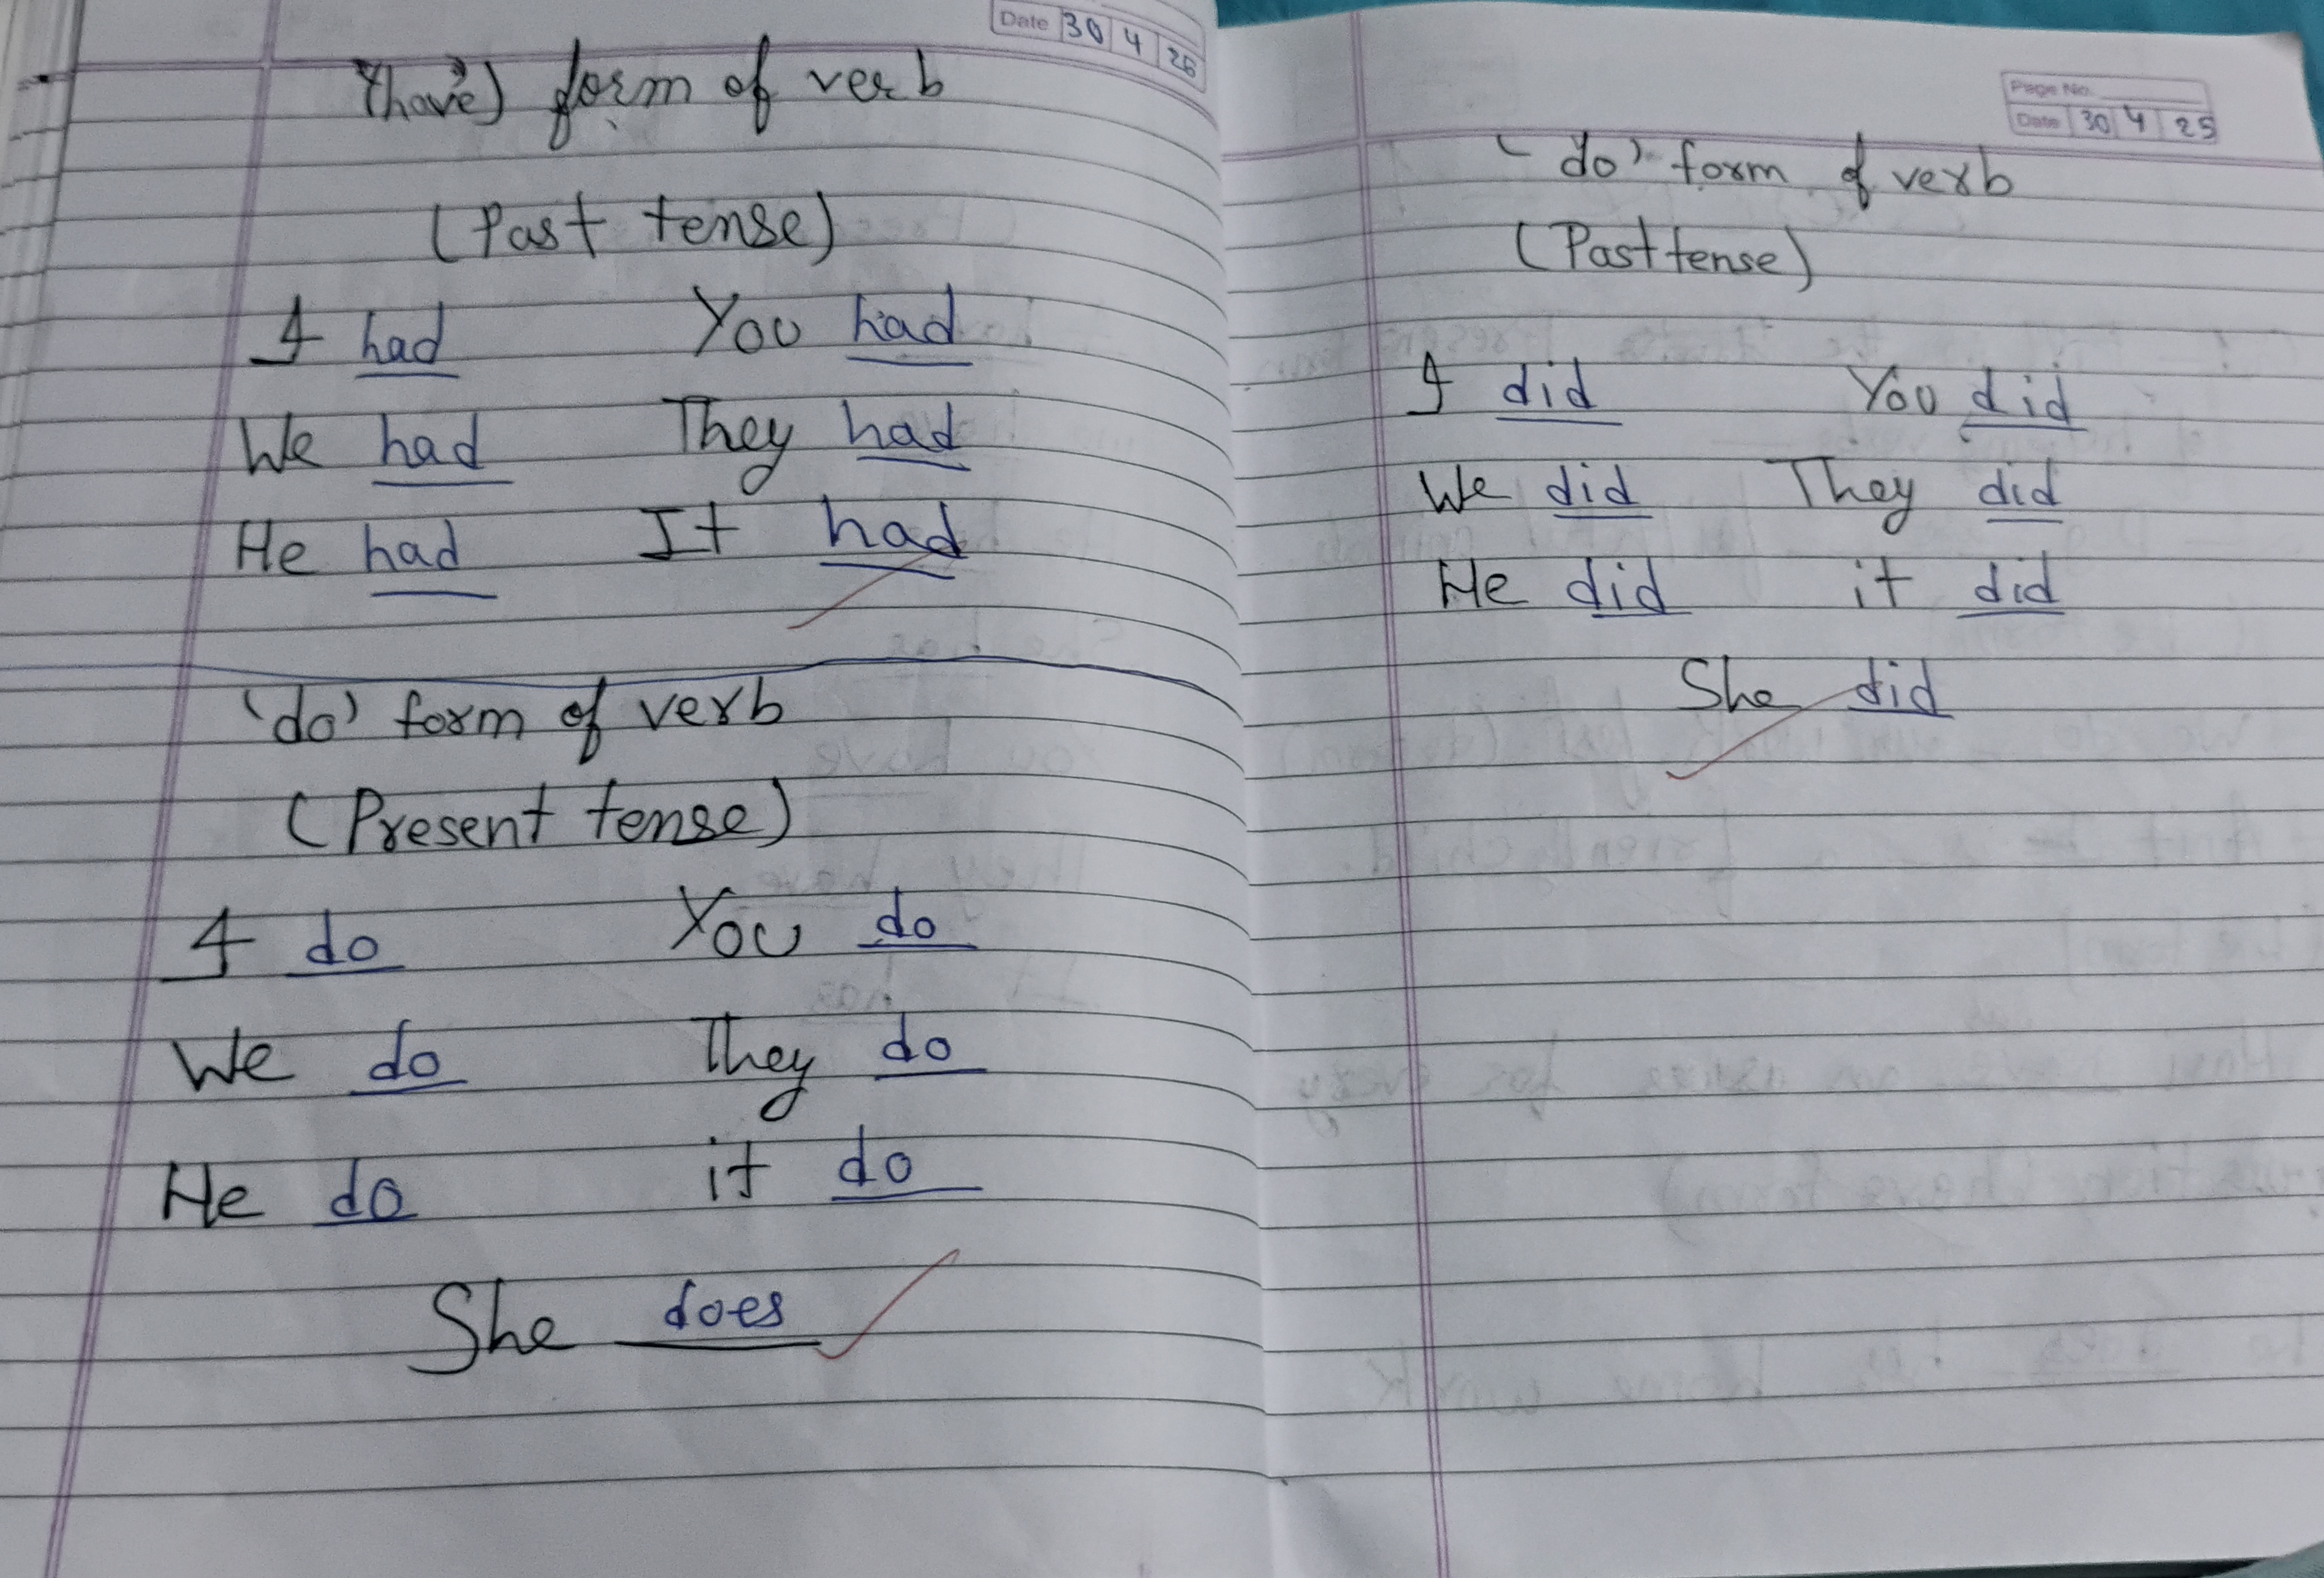 Date 30 4 25
'have' form of verb
(Past tense)
I had You had
We had They had
He had It had
'do' form of verb
(Present tense)
I do You do
We do They do
He do it do
She does
Page No.
Date 30 4 25
'do' form of verb
(Past tense)
I did You did
We did They did
He did it did
She did